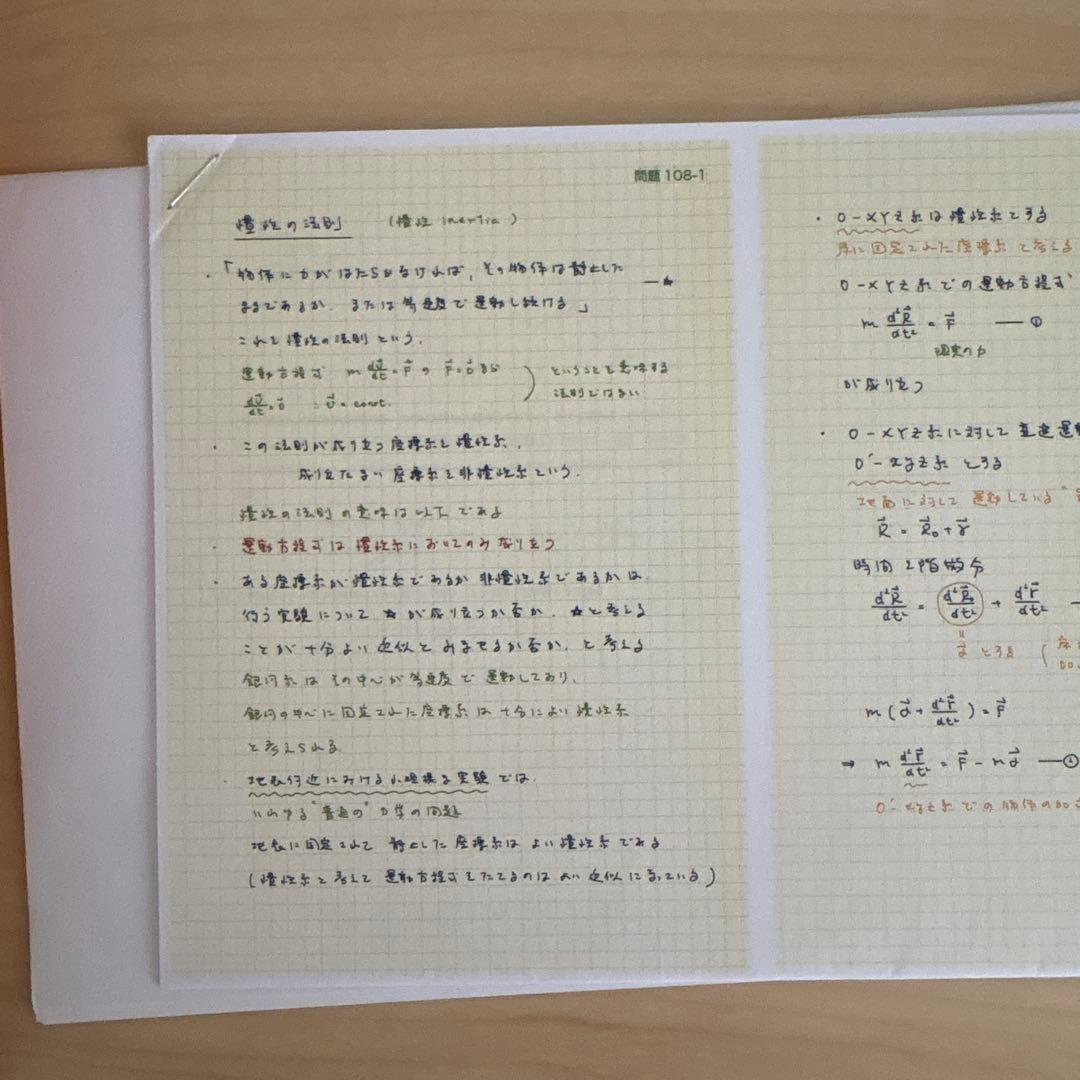 問題 108-1
慣性の法則 (慣性 inertia)
・「物体に力がはたらかなければ, その物体は静止した
ままであるか, または等速度で運動し続ける」 —★
これを慣性の法則という.
運動方程式 m dv⃗/dt = F⃗ の F⃗ = 0⃗ なら
dv⃗/dt = 0⃗ ∴ v⃗ = const.
ということを意味する
法則ではない
・この法則が成り立つ座標系を慣性系,
成りたたない座標系を非慣性系という.
慣性の法則の意味は以下である
・運動方程式は慣性系においてのみ成り立つ
・ある座標系が慣性系であるか非慣性系であるかは
行う実験について ★が成り立つか否か. ★と考える
ことが十分よい近似とみなせるか否か, と考える
銀河系はその中心が等速度で運動しており,
銀河の中心に固定された座標系は十分によい慣性系
と考えられる
・地表付近における小規模な実験では.
いわゆる"普通の"力学の問題
地表に固定されて静止した座標系はよい慣性系である
(慣性系と考えて運動方程式をたてるのはよい近似になっている)
・O-XYZ系は慣性系とする
床に固定された座標系と考える
O-XYZ系での運動方程式
m d²R⃗/dt² = F⃗ —①
現実の力
が成り立つ
・O-XYZ系に対して直進運
O'-xyz系とする
地面に対して運動している"
R⃗ = R⃗₀ + r⃗
時間2階微分
d²R⃗/dt² = d²R⃗₀/dt² + d²r⃗/dt²
= α⃗ とする
m(α⃗ + d²r⃗/dt²) = F⃗
⇒ m d²r⃗/dt² = F⃗ - mα⃗ —②
O'-xyz系での物体の加